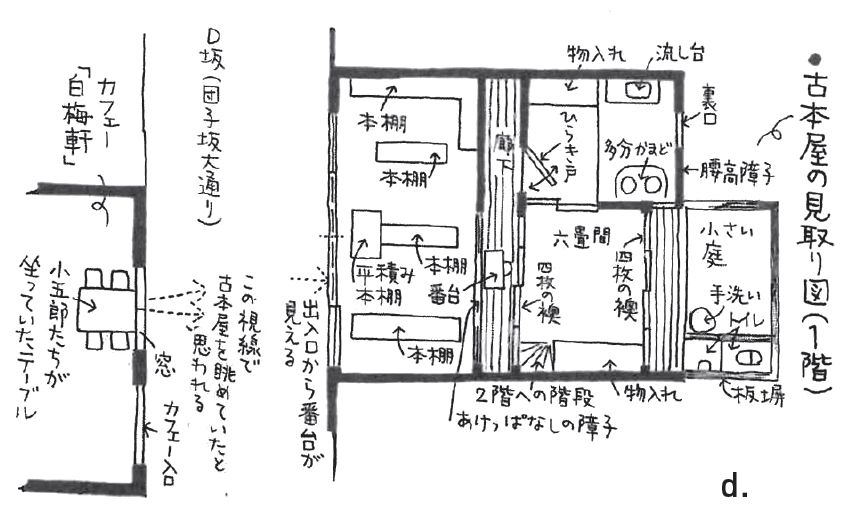 ●古本屋の見取り図(1階)
物入れ
流し台
裏口
本棚
廊下
ひらき戸
多分かまど
腰高障子
本棚
六畳間
小さい
庭
本棚
平積み
本棚
番台
四枚の襖
四枚の襖
手洗い
トイレ
本棚
2階への階段
物入れ
板塀
あけっぱなしの障子
出入口から番台が
見える
D坂(団子坂大通り)
この視線で
古本屋を眺めていたと
思われる
カフェー
「白梅軒」
窓
カフェー入口
小五郎たちが
坐っていたテーブル
d.